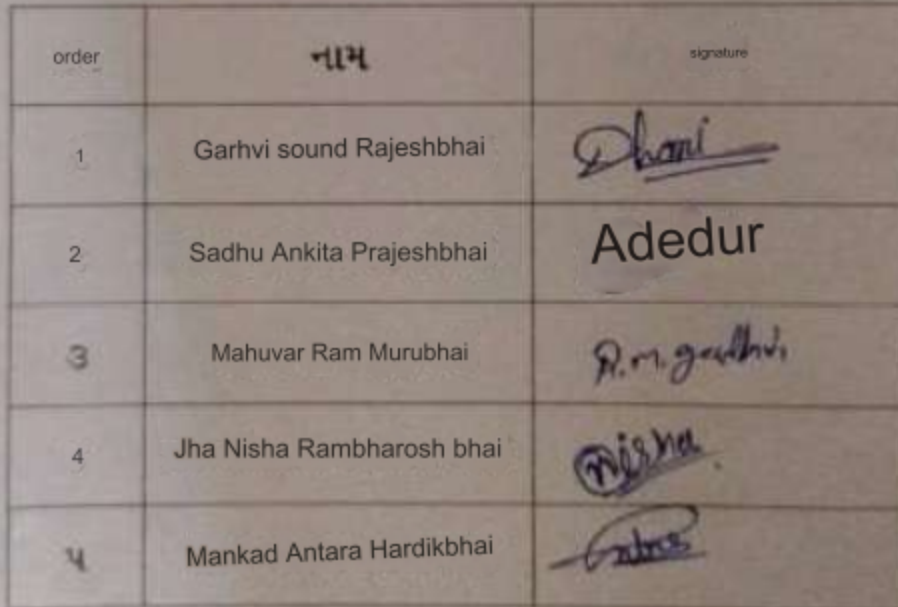 order નામ signature
1 Garhvi sound Rajeshbhai Dhani
2 Sadhu Ankita Prajeshbhai Adedur
3 Mahuvar Ram Murubhai R.m. gadhvi
4 Jha Nisha Rambharosh bhai Nisha
૫ Mankad Antara Hardikbhai